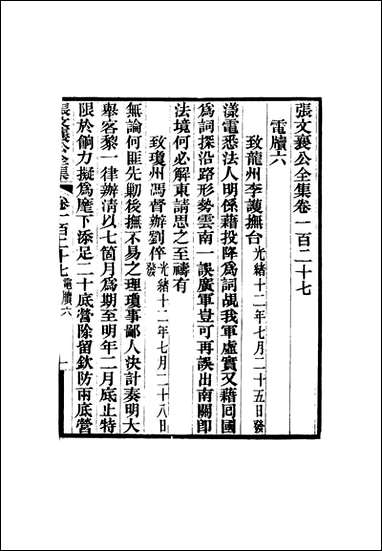 張文襄公全集卷一百二十七
電牘六
致龍州李護撫台光緒十二年七月二十五日發
漾電悉法人明係藉投降爲詞覘我軍虛實又藉囘國
爲詞探沿路形勢雲南一誤廣軍豈可再誤出南關卽
法境何必解東請思之至禱有
致瓊州馮督辦劉倅光緒十二年七月二十八日發
無論何匪先勦後撫不易之理瓊事鄙人決計奏明大
舉客黎一律辦清以七箇月爲期至明年二月底止特
限於餉力擬爲麾下添足二十底營除留欽防兩底營
張文襄公全集 卷一百二十七 電牘六 一